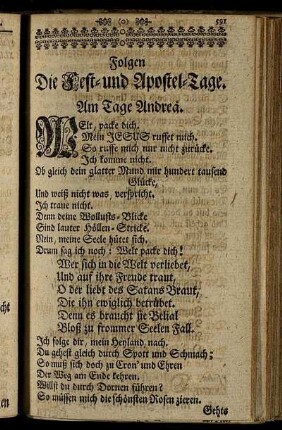 (o) 591
Folgen
Die Fest- und Apostel-Tage.
Am Tage Andreä.
Welt, packe dich,
Mein JESUS ruffet mich,
So ruffe mich nur nicht zurücke.
Ich komme nicht.
Ob gleich dein glatter Mund mir hundert tausend
Glücke,
Und weiß nicht was, verspricht.
Ich traue nicht.
Denn deine Wollusts-Blicke
Sind lauter Höllen-Stricke.
Nein, meine Seele hütet sich.
Drum sag ich noch: Welt packe dich!
Wer sich in die Welt verliebet,
Und auf ihre Freude traut,
O der liebt des Satans Braut,
Die ihn ewiglich betrübet.
Denn es braucht sie Belial
Bloß zu frommer Seelen Fall.
Ich folge dir, mein Heyland, nach.
Du gehest gleich durch Spott und Schmach;
So muß sich doch zu Cron' und Ehren
Der Weg am Ende kehren.
Willst du durch Dornen führen?
So müssen mich die schönsten Rosen zieren.
Gehts